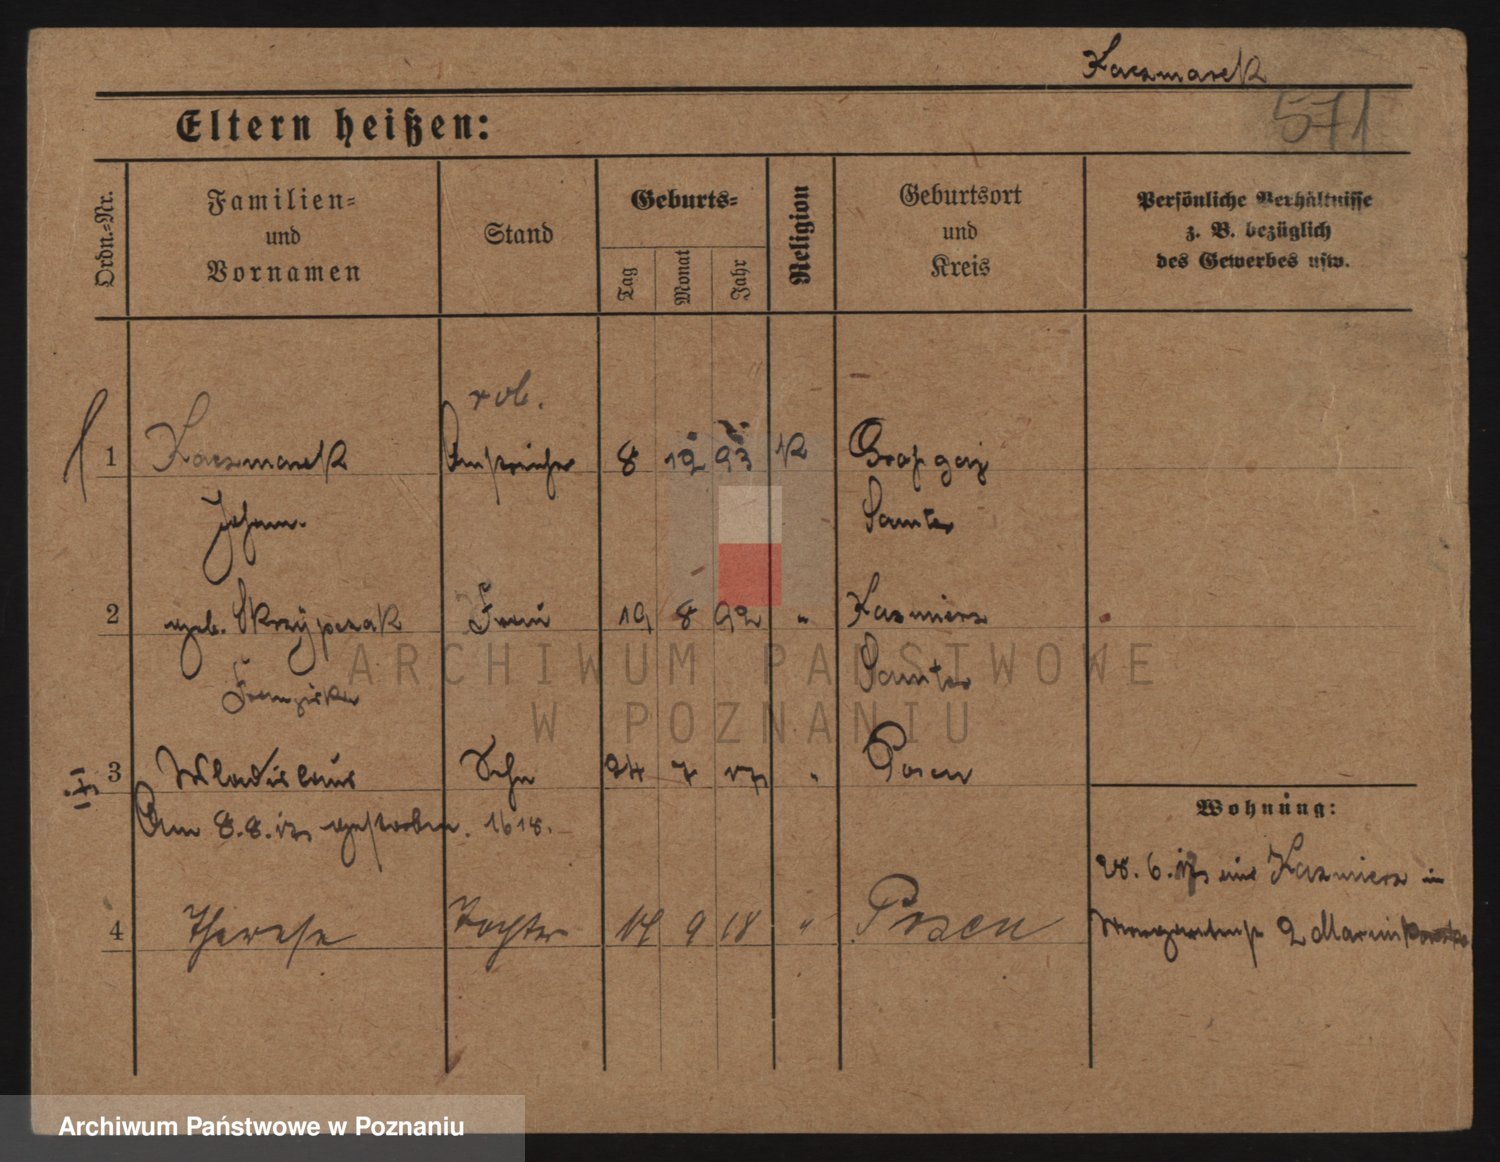 Kaczmarek
571
Eltern heißen:
Ordn.-Nr.
Familien-
und
Vornamen
Stand
Geburts-
Tag
Monat
Jahr
Religion
Geburtsort
und
Kreis
Persönliche Verhältnisse
z. B. bezüglich
des Gewerbes usw.
rob.
1 Kaczmarek Anstreicher 8 12. 93 K
Johann. Samter
2 geb. Skrzypczak Frau 19 8 92 " Kazmierz
Franziska Samter
3 Wladislaus Sohn 24 7 17 " Posen
Am 8.8.17 gestorben. 1618.
Wohnung:
28. 6. 17 aus Kazmierz in
4 Therese Tochter 14 9 18 " Posen
2
ARCHIWUM PAŃSTWOWE
W POZNANIU
Archiwum Państwowe w Poznaniu